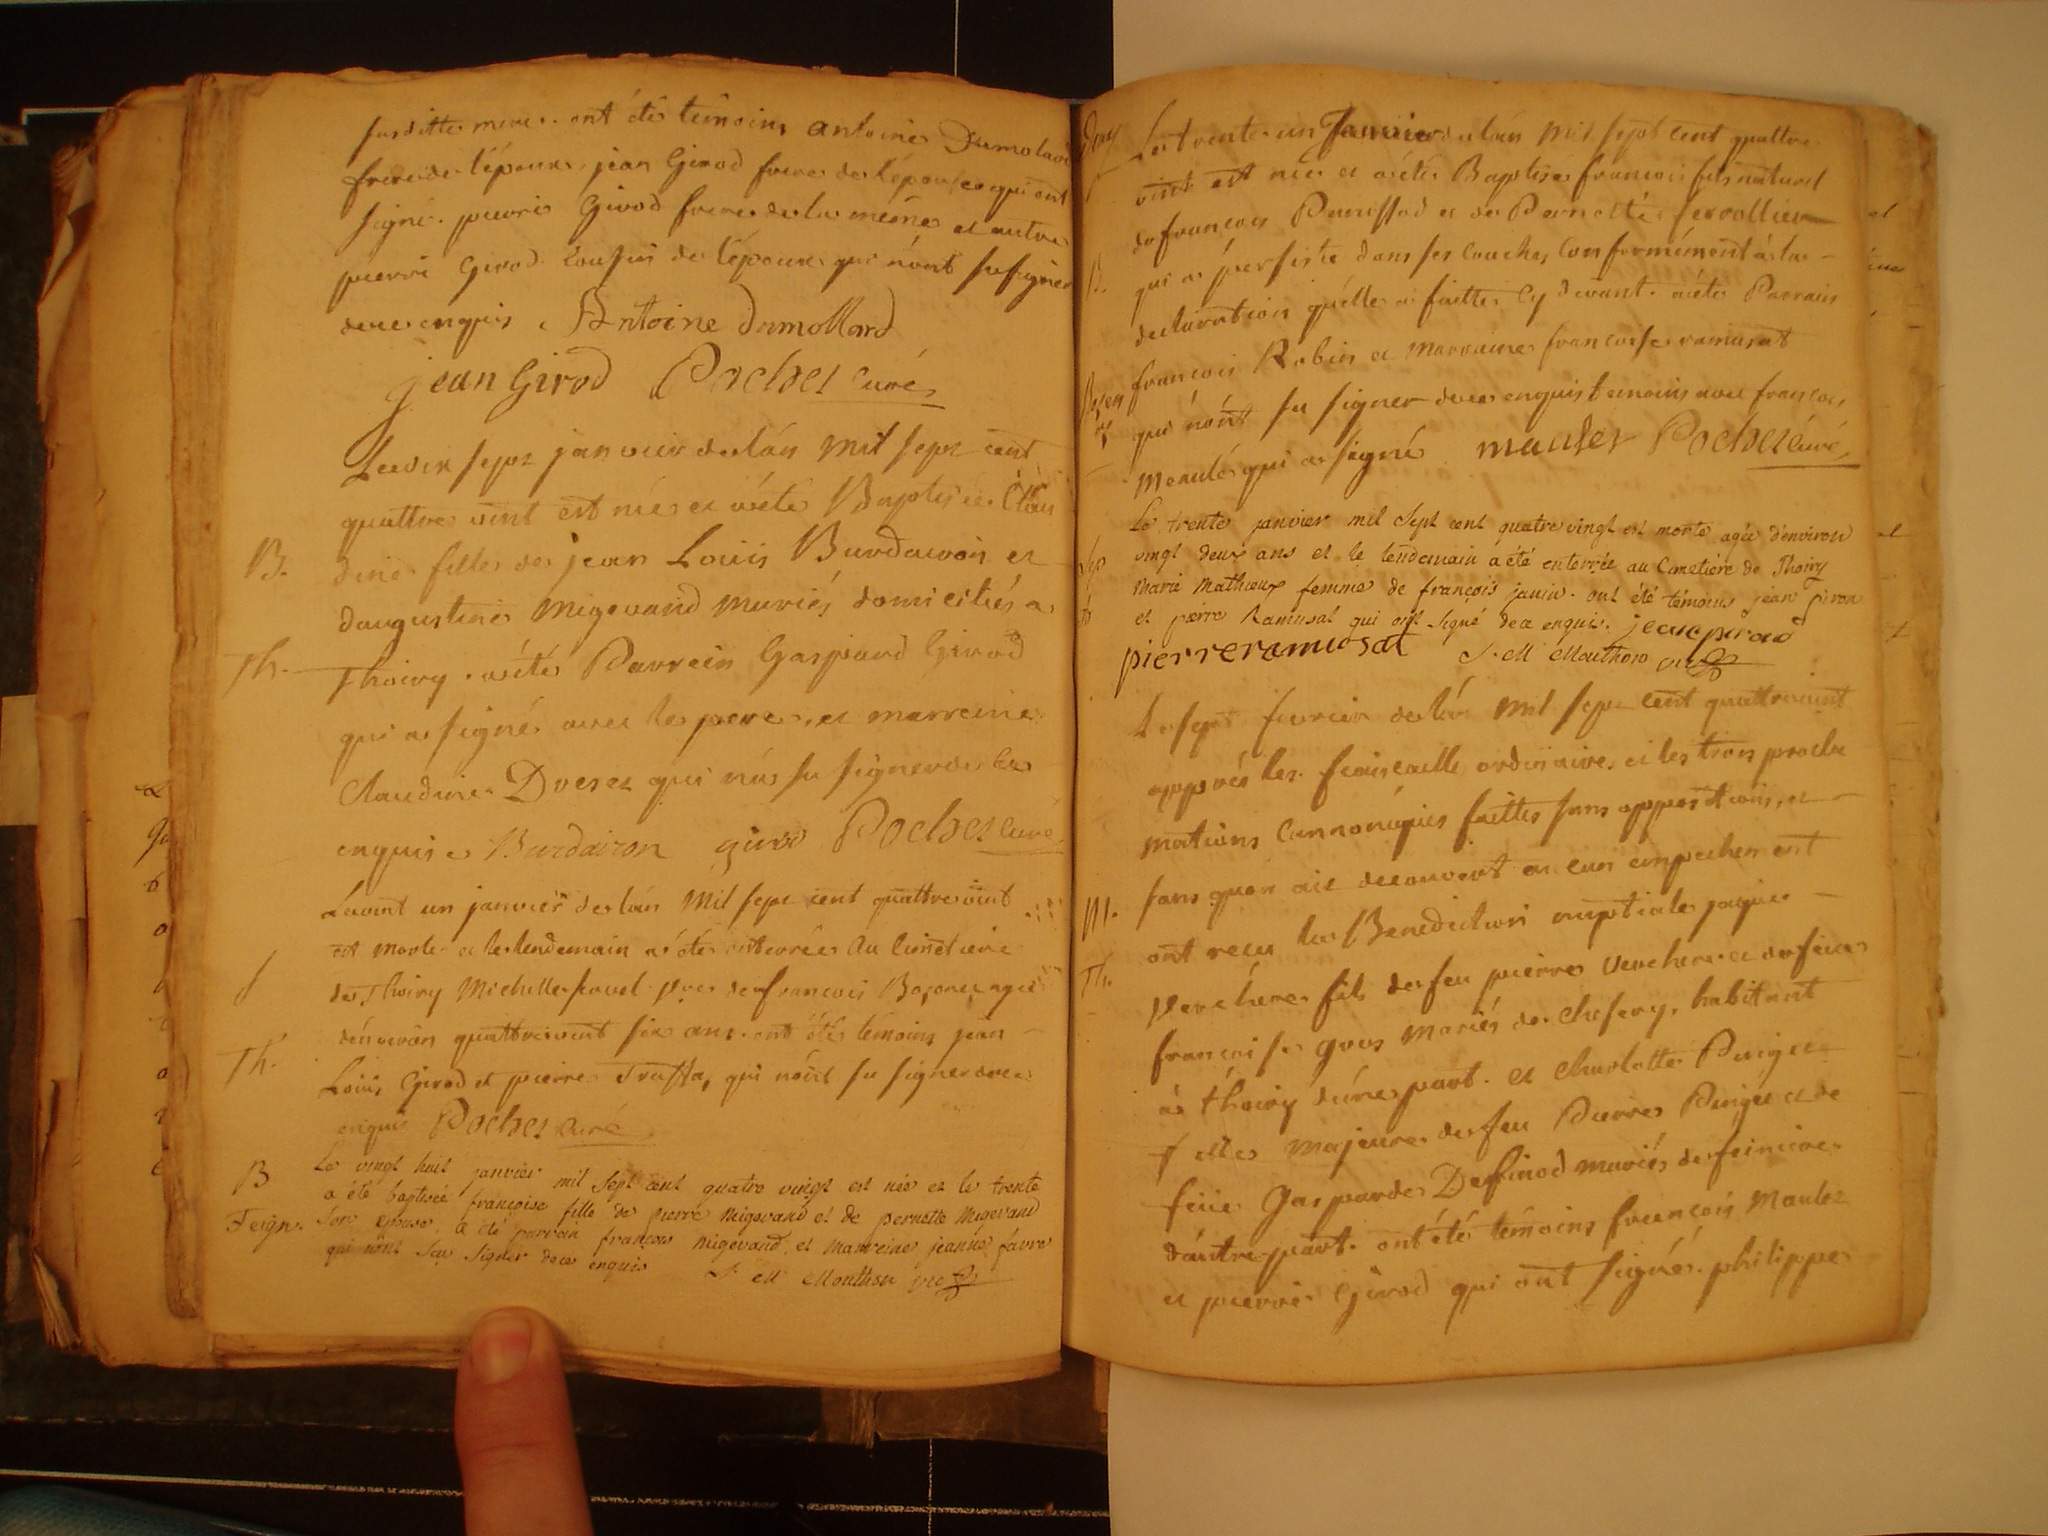 susditte mere. ont été témoins antoine Dumolard
frere de l'époux, jean Girod frere de l'épouse qui ont
signé. pierre Girod frere de la même et autre
pierre Girod cousin de l'époux qui n'ont su signer
de ce enquis. Antoine Dumollard
jean Girod Pochet curé
Le dix sept janvier de l'an mil sept cent
quattre vint est née et a été Baptisée Clau
B. dine fille de jean Louis Burdairon et
d'augustine Migevand mariés domiciliés a
Th. Thoiry. a été Parrein Gaspard Girod
qui a signé avec le pere, et marreine
Claudine Druez qui n'a su signer de ce
enquise Burdairon girod Pochet curé
Le vint un janvier de l'an Mil sept cent quattre vint
est morte et le lendemain a été enterrée au Cimetiere
de Thoiry Michelle favel de françois agée
d'environ quattre vint six ans. ont été témoins jean
Th. Louis Girod et pierre Truffa, qui n'ont su signer de ce
enquis Pochet curé
B Le vingt huit janvier mil sept cent quatre vingt est née et le trente
a été baptisée françoise fille de pierre Migevand et de pernette Migevand
Feign. son epouse. a été parrein françois migevand, et marreine jeanne favre
qui n'ont sçu signer de ce enquis J. M Mouthon vic
Le trente un Janvier de l'an Mil sept cent quattre
vint est née et a été Baptisé francois fils naturel
de francois Panissod et de Pernette servollier
B. qui a persisté dans ses couches conformément à la
declaration qu'elle a faitte cy devant. a été Parrain
francois Robin et marraine francoise ramusat
qui n'ont su signer de ce enquis temoins avec francois
Meaulé qui a signé maulet Pochet curé
Le trente janvier mil sept cent quatre vingt est morte agée d'environ
vingt deux ans et le lendemain a été enterrée au Cimetière de Thoiry
Marie Mathieux femme de françois janin. ont été témoins jean girod
et pierre Ramusat qui ont signé de ce enquis. jean girod
pierre ramusat J. M Mouthon vic
Le sept fevrier de l'an Mil sept cent quattre vint
apprés les fiancaille ordinaire, et les trois procla
mations cannoniques faittes sans opposition, et
sans qu'on aie decouvert aucun empechement
M. ont recu la Benediction nuptiale jaque
Th. Verchere fils de feu pierre verchere et de feue
francoise gros mariés de chesery, habitant
à thoiry d'une part. et charlotte Puigie
fille majeure de feu Pierre Puigie et de
feue Gasparde Deffinod mariés de feiniere
d'autre part. ont été témoins francois Maulez
et pierre Girod qui ont signés. philippe